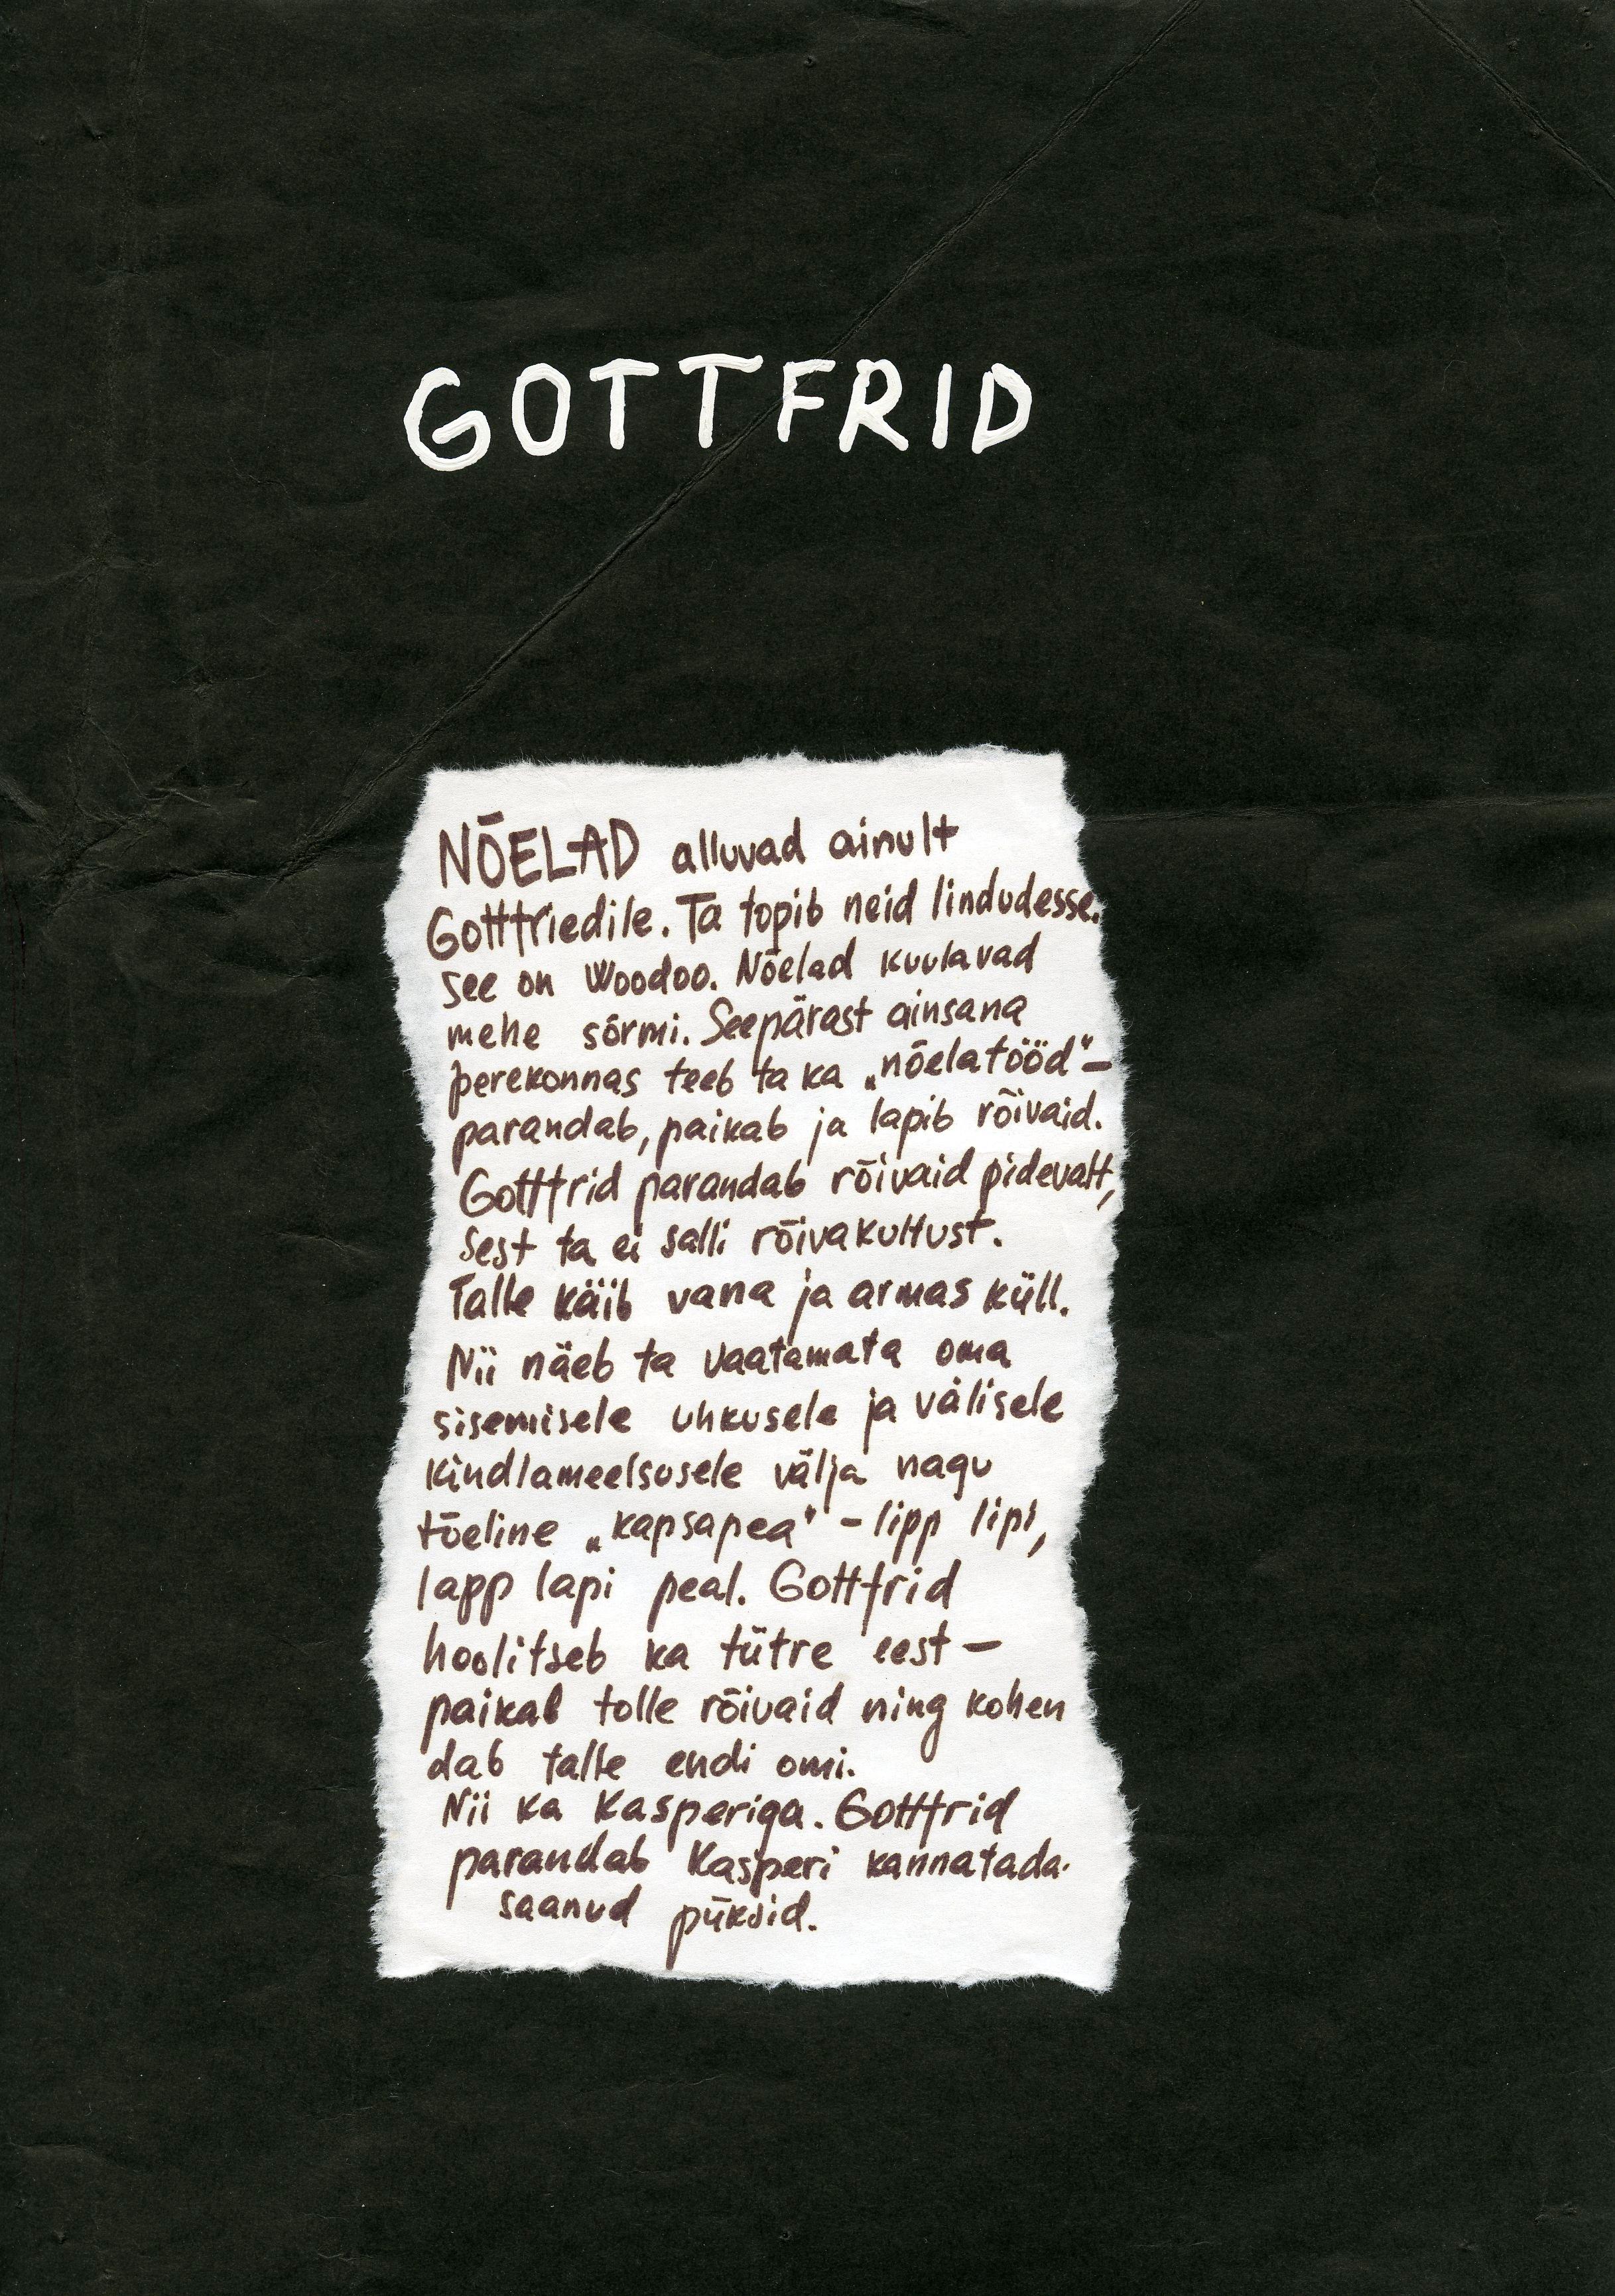 GOTTFRID
NÕELAD alluvad ainult
Gottfriedile. Ta topib neid lindudesse.
see on Woodoo. Nõelad kuulavad
mehe sõrmi. Seepärast ainsana
perekonnas teeb ta ka „nõelatööd" –
parandab, paikab ja lapib rõivaid.
Gottfrid parandab rõivaid pidevalt,
sest ta ei salli rõivakultust.
Talle käib vana ja armas küll.
Nii näeb ta vaatamata oma
sisemisele uhkusele ja välisele
kindlameelsusele välja nagu
tõeline „kapsapea" – lipp lipi,
lapp lapi peal. Gottfrid
hoolitseb ka tütre eest –
paikab tolle rõivaid ning kohen
dab talle endi omi.
Nii ka Kasperiga. Gottfrid
parandab Kasperi kannatada-
saanud püksid.